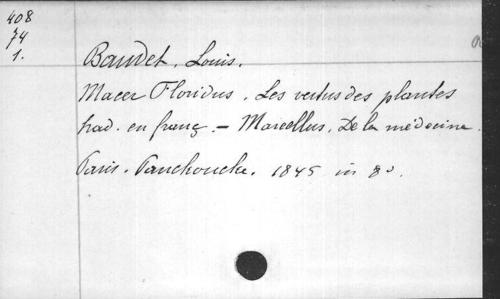 408
74
1.
Baudet, Louis.
Macer Floridus. Les vertus des plantes
trad. en franç. - Marcellus. De la médecine.
Paris. Panckoucke. 1845 in 8º.